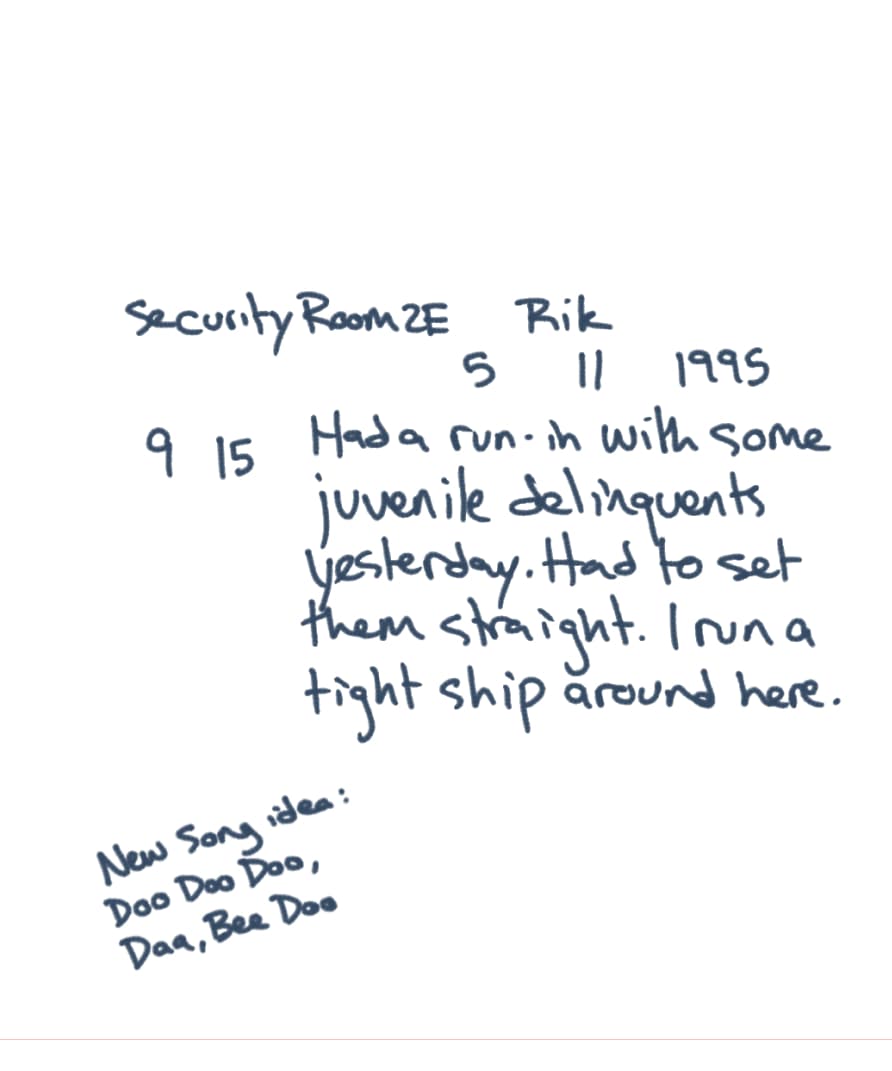 Security Room 2E Rik
5 11 1995
9 15 Had a run-in with some
juvenile delinquents
yesterday. Had to set
them straight. I run a
tight ship around here.
New Song idea:
Doo Doo Doo,
Daa, Bee Doo